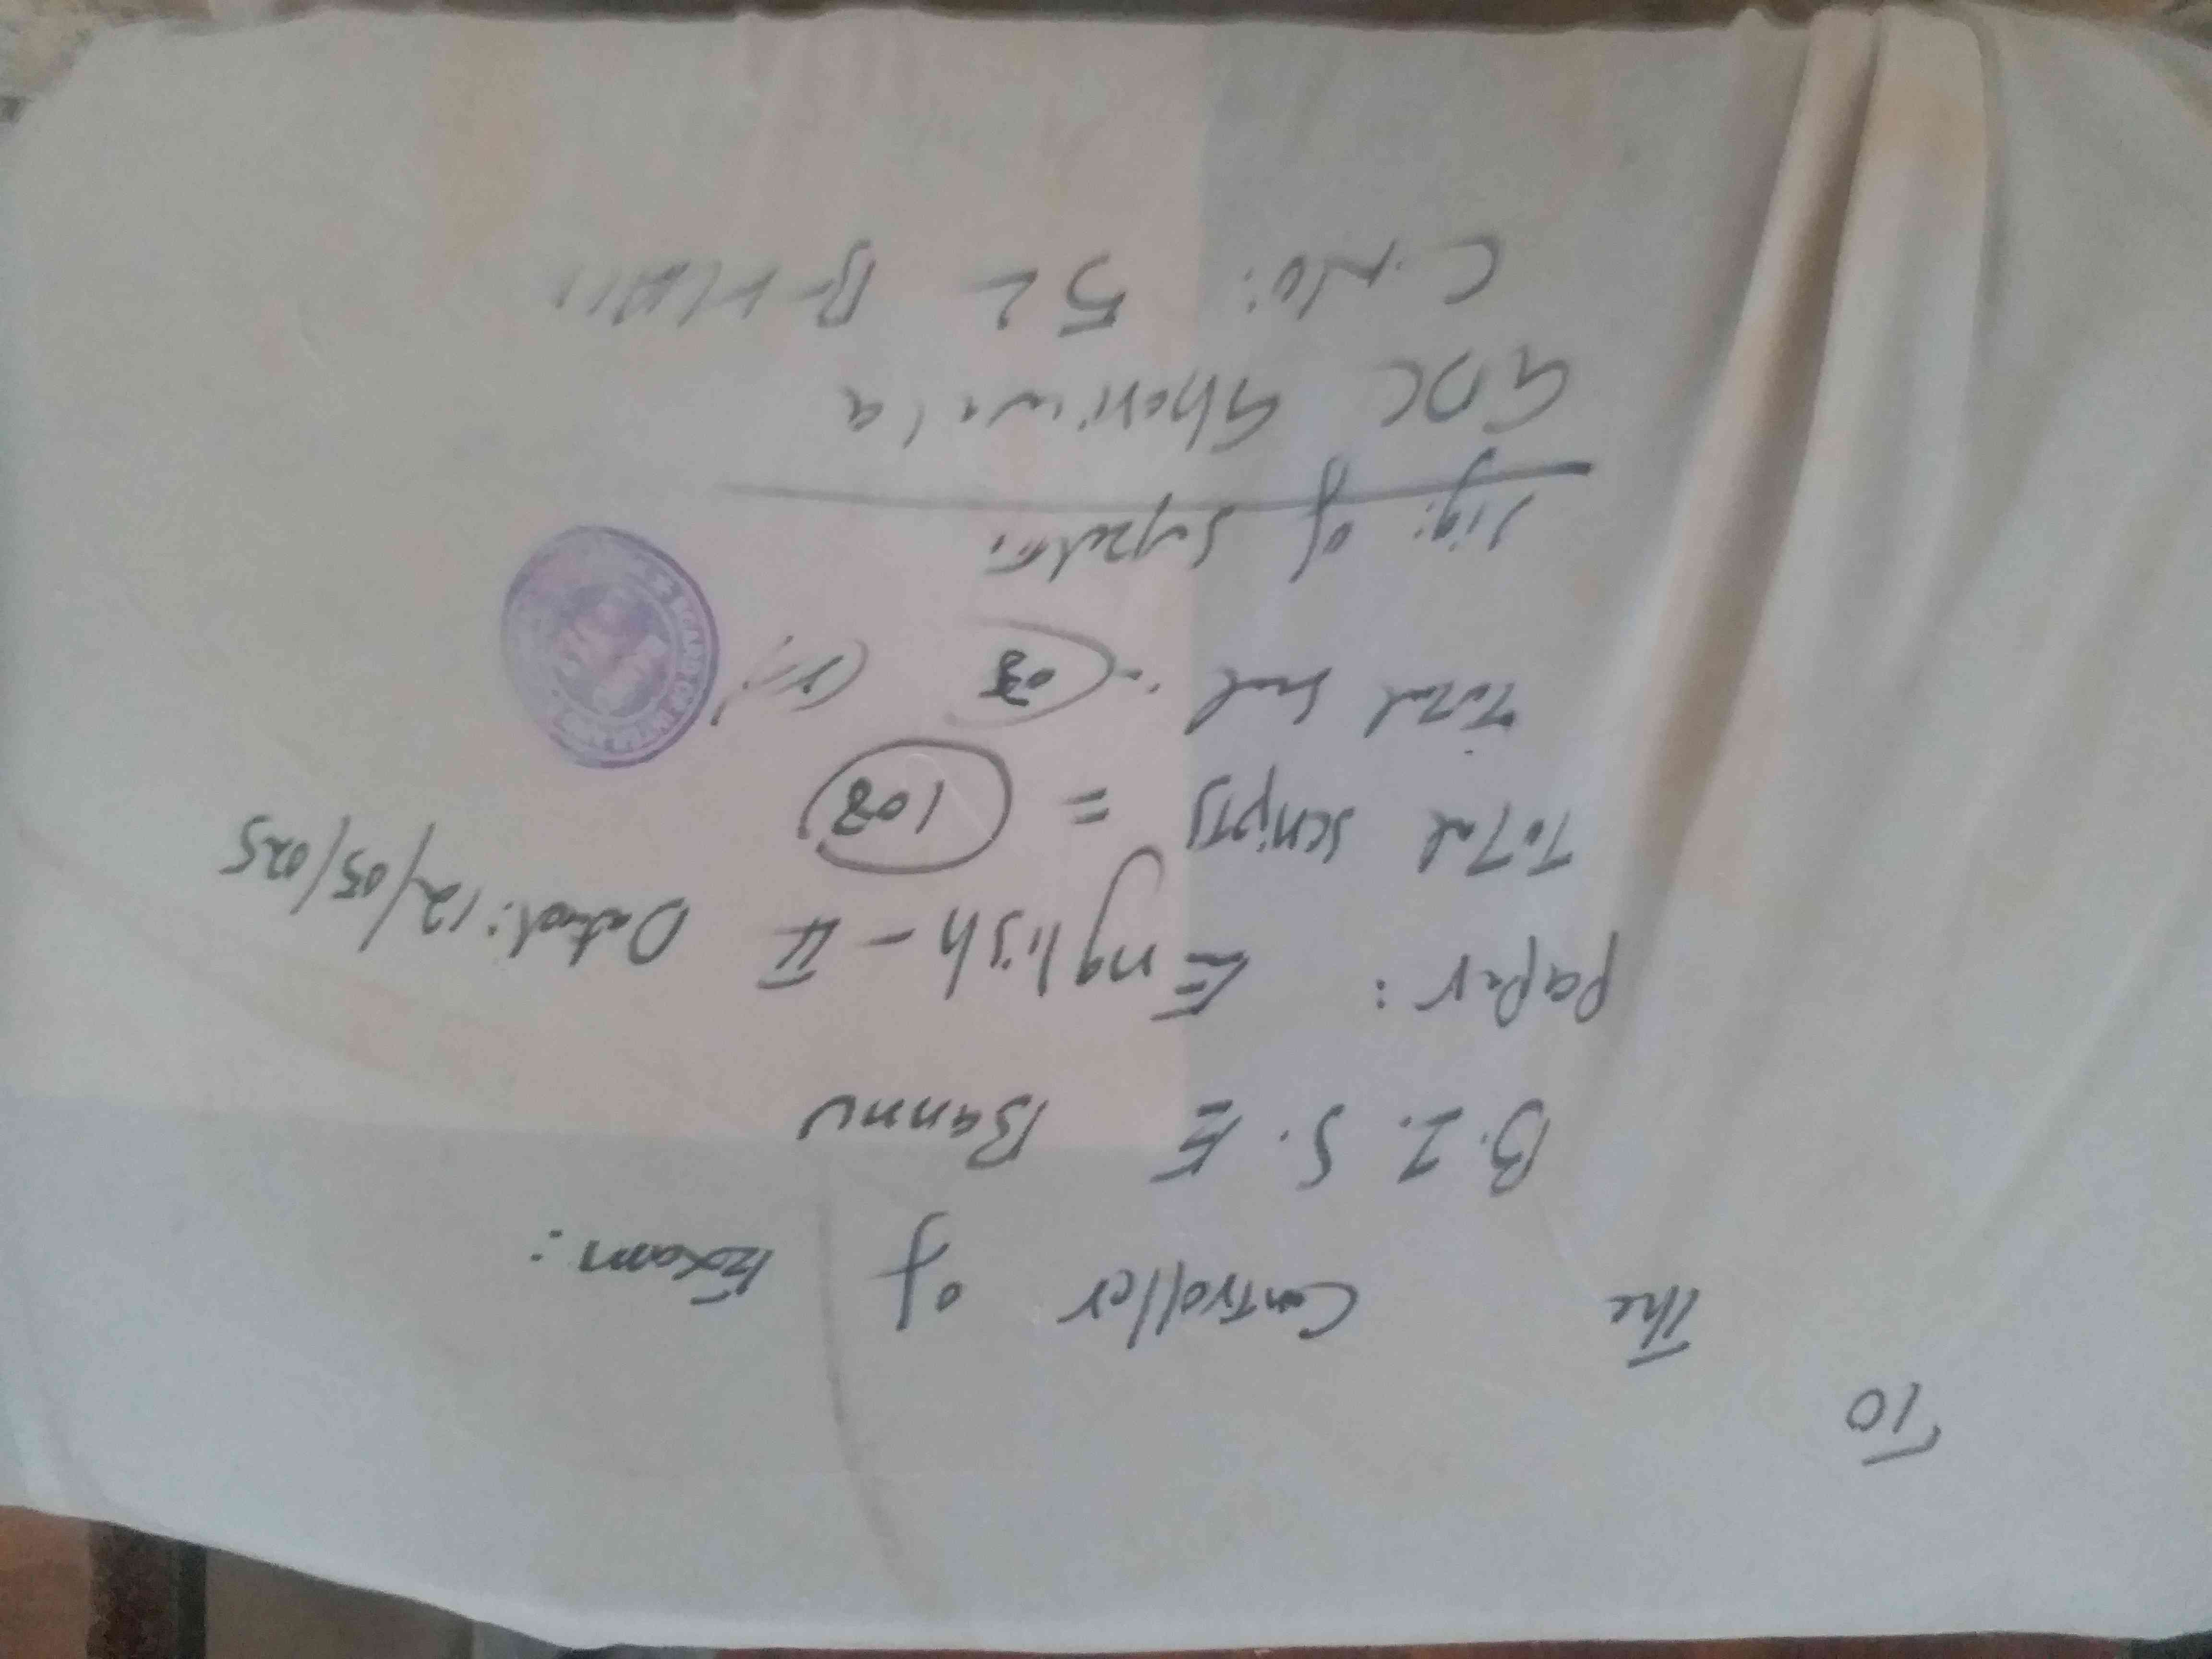 To
The Controller of Exam:
B.I.S.E Bannu
Paper: English-II Dated: 12/05/025
Total scripts = 108
Total seal :- 03
Sig: of Supdt:
GDC Ghoriwala
C.No: 52 B-
BOARD OF INTER